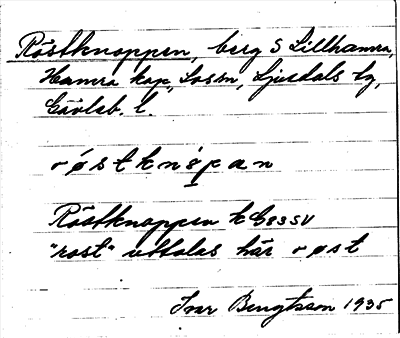 Röstknoppen, berg S Lillhamra,
Hamra kap., Sossn, Ljusdals tg,
Gävleb. l.
røstknǿpan
Röstknoppen k G83SV
"rost" uttalas här røst
Ivar Bengtsson 1935